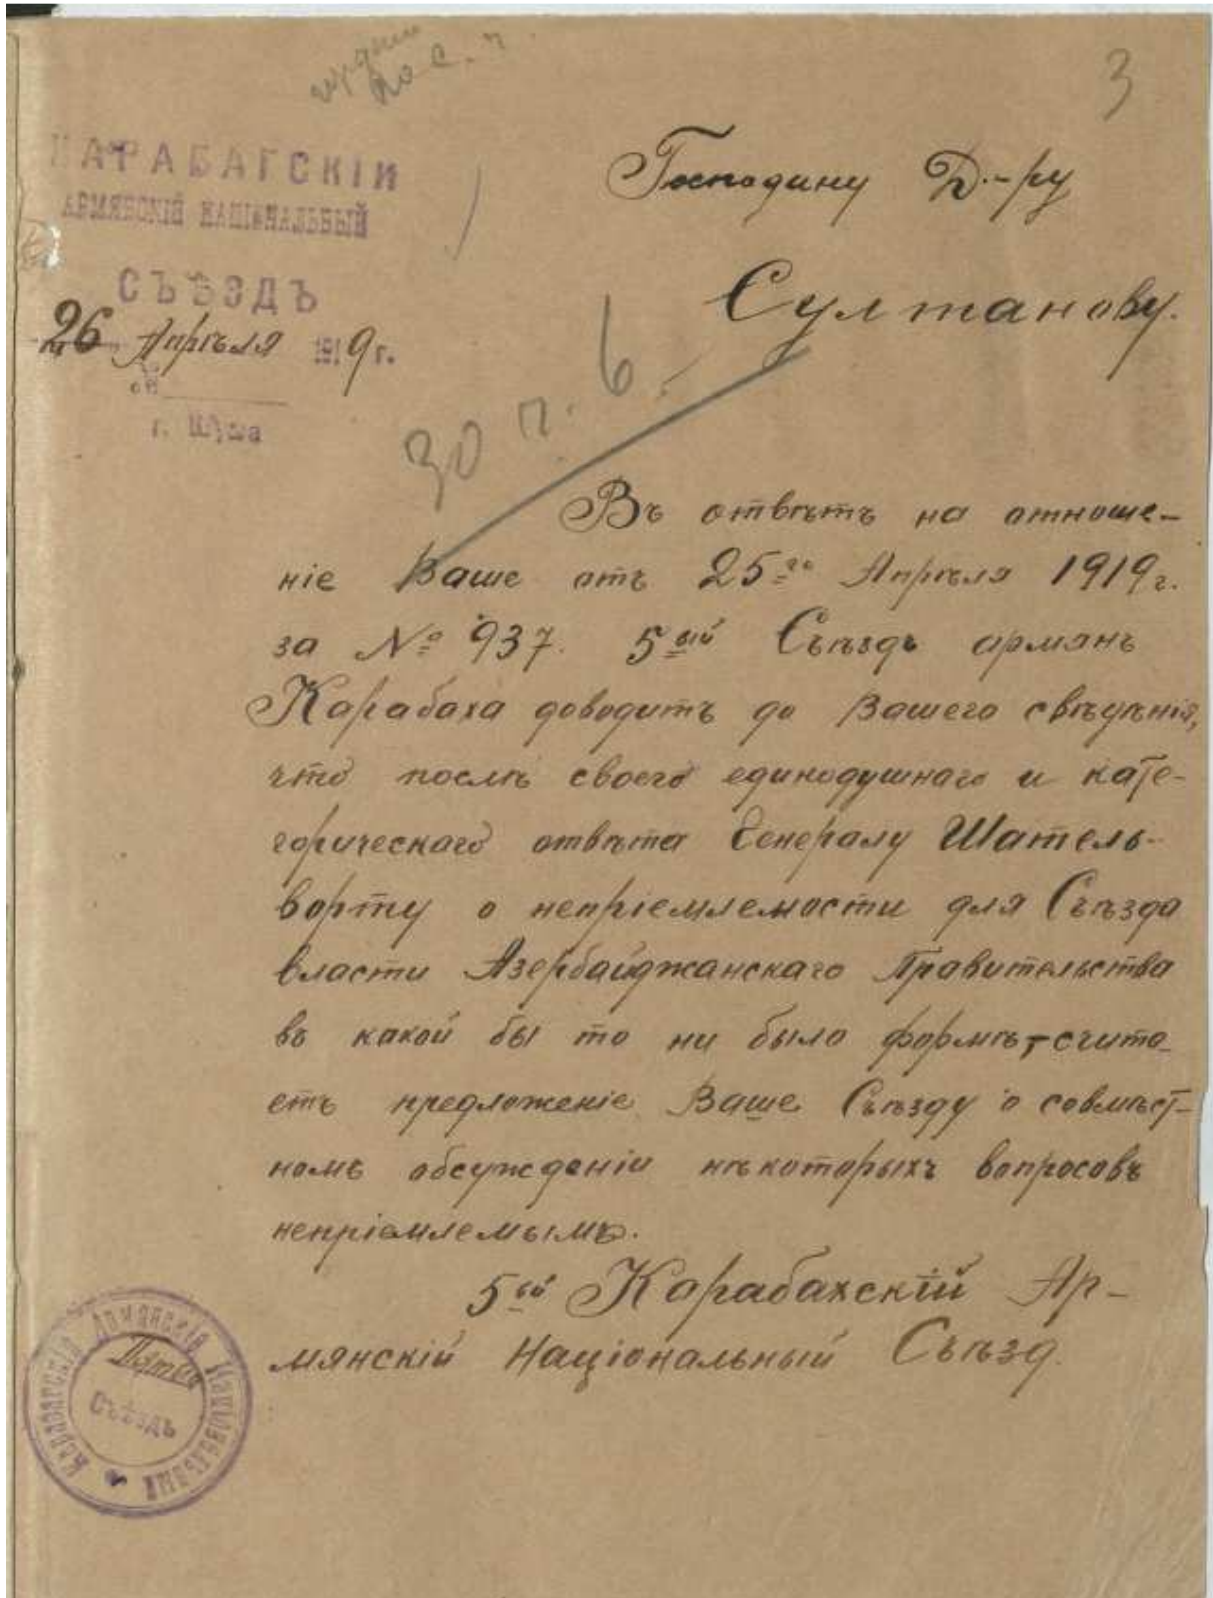 3
КАРАБАГСКІЙ
АРМЯНСКІЙ НАЦІОНАЛЬНЫЙ
СЪѢЗДЪ
26 Апрѣля 1919 г.
г. Шуша
Господину Д.-ру
Султанову.
30 п. 6.
Въ отвѣтъ на отноше-
ніе Ваше отъ 25го Апрѣля 1919 г.
за № 937. 5ый Съѣздъ армянъ
Карабаха доводитъ до Вашего свѣдѣнія,
что послѣ своего единодушнаго и кате-
горическаго отвѣта Генералу Шатель-
ворту о непріемлемости для Съѣзда
власти Азербайджанскаго Правительства
въ какой бы то ни было формѣ, - счита-
етъ предложеніе Ваше Съѣзду о совмѣст-
номъ обсужденіи нѣкоторыхъ вопросовъ
непріемлемымъ.
5ый Карабахскій Ар-
мянскій Національный Съѣзд.
Карабагскій Армянскій Національный
Пятый
Съѣздъ